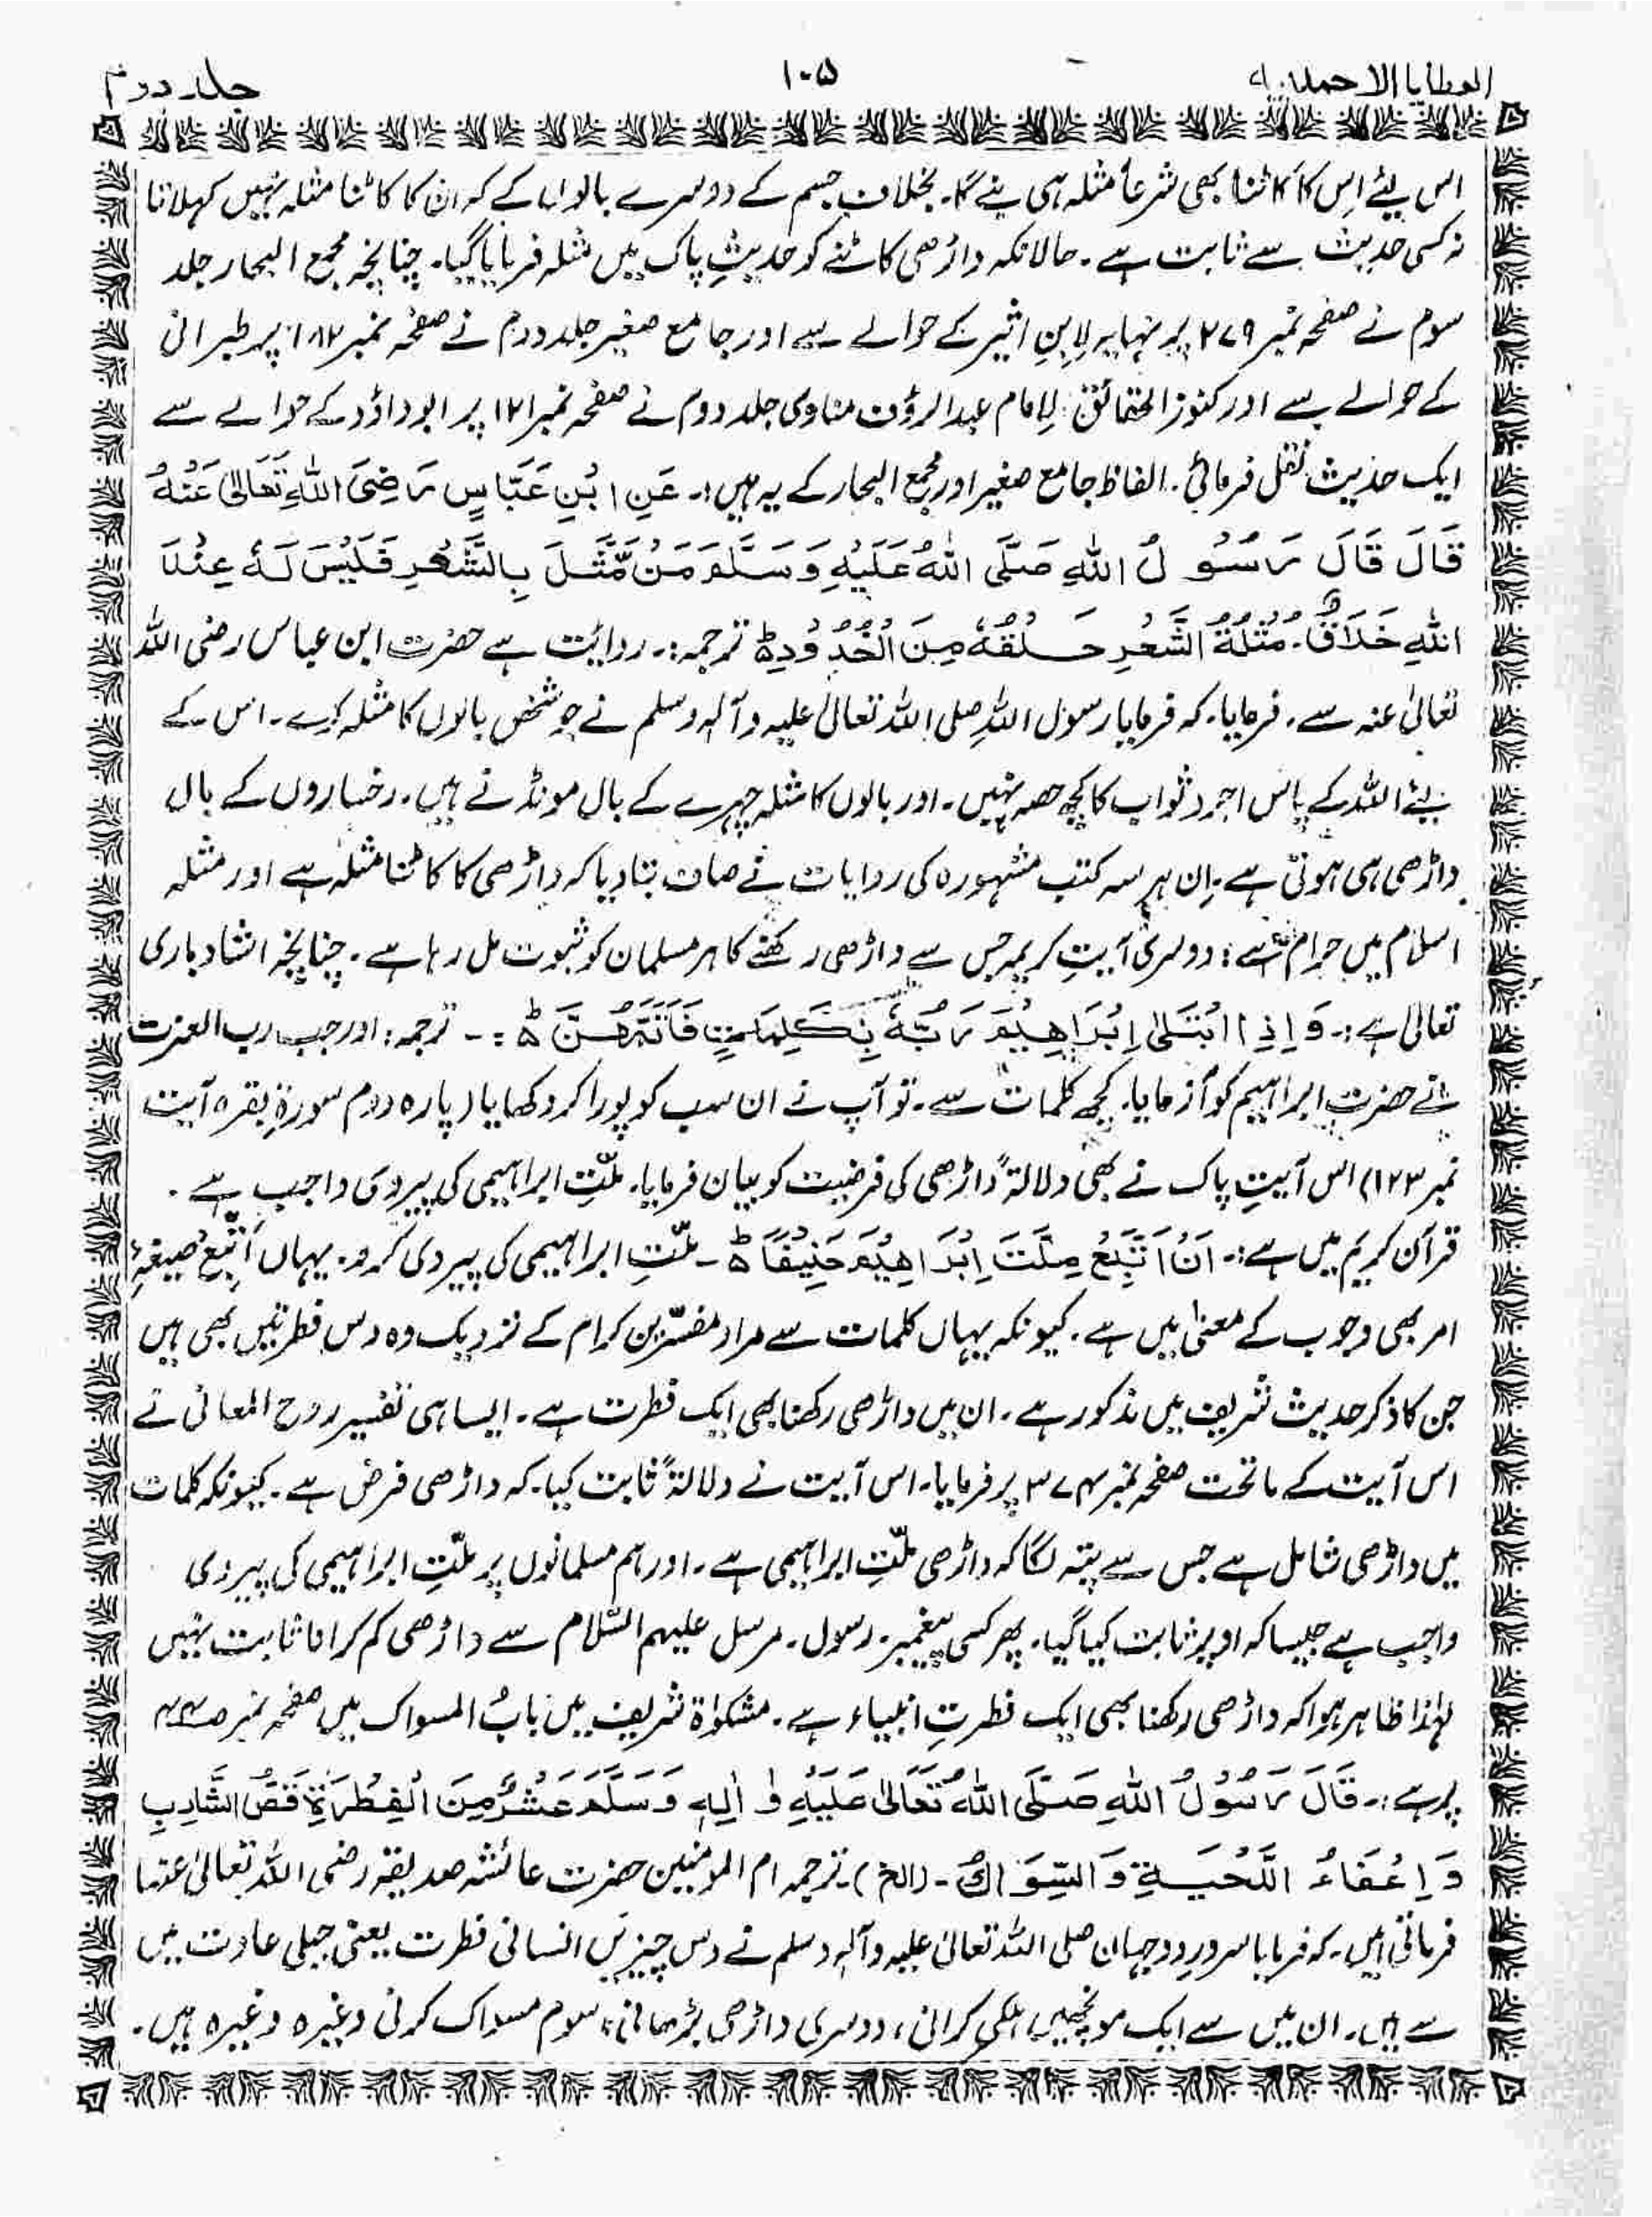 العطایا الاحمدیہ
۱۰۵
جلد دوم
اس لیئے اِس کا کاٹنا بھی شرعاً مُثلہ ہی بنے گا۔ بخلاف جسم کے دوسرے بالوں کے کہ ان کا کاٹنا مثلہ نہیں کہلاتا
نہ کسی حدیث سے ثابت ہے۔ حالانکہ داڑھی کاٹنے کو حدیثِ پاک میں مثلہ فرمایا گیا۔ چنانچہ مجمع البحار جلد
سوم نے صفحہ نمبر ۲۷۹ پر نہایہ لِابنِ اثیر کے حوالے سے اور جامع صغیر جلد دوم نے صفحہ نمبر ۱۸۲ پر طبرانی
کے حوالے سے اور کنوز الحقائق لِامام عبد الرؤف مناوی جلد دوم نے صفحہ نمبر ۱۲۱ پر ابو داؤد کے حوالے سے
ایک حدیث نقل فرمائی۔ الفاظ جامع صغیر اور مجمع البحار کے یہ ہیں:۔ عَنِ ابْنِ عَبَّاسٍ رَضِیَ اللّٰہِ تَعَالیٰ عَنْہُ
قَالَ قَالَ رَسُوْلُ اللّٰہِ صَلَّی اللّٰہُ عَلَیْہِ وَسَلَّمَ مَنْ مَّثَّلَ بِالشَّعْرِ فَلَیْسَ لَہٗ عِنْدَ
اللّٰہِ خَلَاقٌ۔ مُثْلَۃُ الشَّعْرِ حَلْقُہٗ مِنَ الْخُدُوْدِ ط ترجمہ:۔ روائیت ہے حضرت ابن عباس رضی اللہ
تعالیٰ عنہ سے۔ فرمایا۔ کہ فرمایا رسول اللہِ صلی اللہ تعالیٰ علیہ وآلہٖ وسلم نے جو شخص بالوں کا مثلہ کرے۔ اس کے
لیئے اللہ کے پاس اجر و ثواب کا کچھ حصہ نہیں۔ اور بالوں کا مثلہ چہرے کے بال مونڈنے ہیں۔ رخساروں کے بال
داڑھی ہی ہوتی ہے۔ اِن ہر سہ کتب مشہورہ کی روایات نے صاف بتادیا کہ داڑھی کا کاٹنا مثلہ ہے اور مثلہ
اسلام میں حرام ہے: دوسری آیتِ کریمہ جس سے داڑھی رکھنے کا ہر مسلمان کو ثبوت مل رہا ہے۔ چنانچہ ارشاد باری
تعالیٰ ہے:۔ وَاِذِ ابْتَلیٰ اِبْرَاہِیْمَ رَبُّہٗ بِکَلِمٰتٍ فَاَتَمَّہُنَّ ط :۔ ترجمہ: اور جب رب العزت
نے حضرتِ ابراہیم کو آزمایا۔ کچھ کلمات سے۔ تو آپ نے ان سب کو پورا کر دکھایا (پارہ دوم سورۃِ بقرہ آیت
نمبر ۱۲۳) اس آیتِ پاک نے بھی دلالۃً داڑھی کی فرضیت کو بیان فرمایا۔ ملّتِ ابراہیمی کی پیروی واجب ہے۔
قرآن کریم میں ہے:۔ اَنْ اَتَّبِعُ مِلَّتَ اِبْرَاہِیْمَ حَنِیْفًا ط ۔ ملّتِ ابراہیمی کی پیروی کرو۔ یہاں اَتَّبِعُ صیغۂ
امر بھی وجوب کے معنیٰ میں ہے۔ کیونکہ یہاں کلمات سے مراد مفسّرین کرام کے نزدیک وہ دس فطرتیں بھی ہیں
جن کا ذکر حدیث شریف میں مذکور ہے۔ ان میں داڑھی رکھنا بھی ایک فطرت ہے۔ ایسا ہی تفسیر روح المعانی نے
اس آیت کے ماتحت صفحہ نمبر ۳۷۴ پر فرمایا۔ اس آیت نے دلالۃً ثابت کیا۔ کہ داڑھی فرض ہے۔ کیونکہ کلمات
میں داڑھی شامل ہے جس سے پتہ لگا کہ داڑھی ملّتِ ابراہیمی ہے۔ اور ہم مسلمانوں پر ملّتِ ابراہیمی کی پیروی
واجب ہے جیسا کہ اوپر ثابت کیا گیا۔ پھر کسی پیغمبر۔ رسول۔ مرسل علیہم السّلام سے داڑھی کم کرانا ثابت نہیں
لہٰذا ظاہر ہوا کہ داڑھی رکھنا بھی ایک فطرتِ انبیاء ہے۔ مشکوٰۃ شریف میں بابُ المسواک میں صفحہ نمبر ۴۴
پر ہے:۔ قَالَ رَسُوْلُ اللّٰہِ صَلَّی اللّٰہُ تَعَالیٰ عَلَیْہِ وَاٰلِہٖ وَسَلَّمَ عَشْرٌ مِّنَ الْفِطْرَۃِ قَصُّ الشَّارِبِ
وَاِعْفَاءُ اللِّحْیَۃِ وَالسِّوَاکُ۔ (الخ)۔ ترجمہ ام المومنین حضرت عائشہ صدیقہ رضی اللہ تعالیٰ عنہا
فرماتی ہیں۔ کہ فرمایا سرورِ دوجہان صلی اللہ تعالیٰ علیہ وآلہٖ وسلم نے دس چیزیں انسانی فطرت یعنی جبلی عادت میں
سے ہیں۔ ان میں سے ایک مونچھیں ہلکی کرانی، دوسری داڑھی بڑھانی، سوم مسواک کرنی وغیرہ وغیرہ ہیں۔